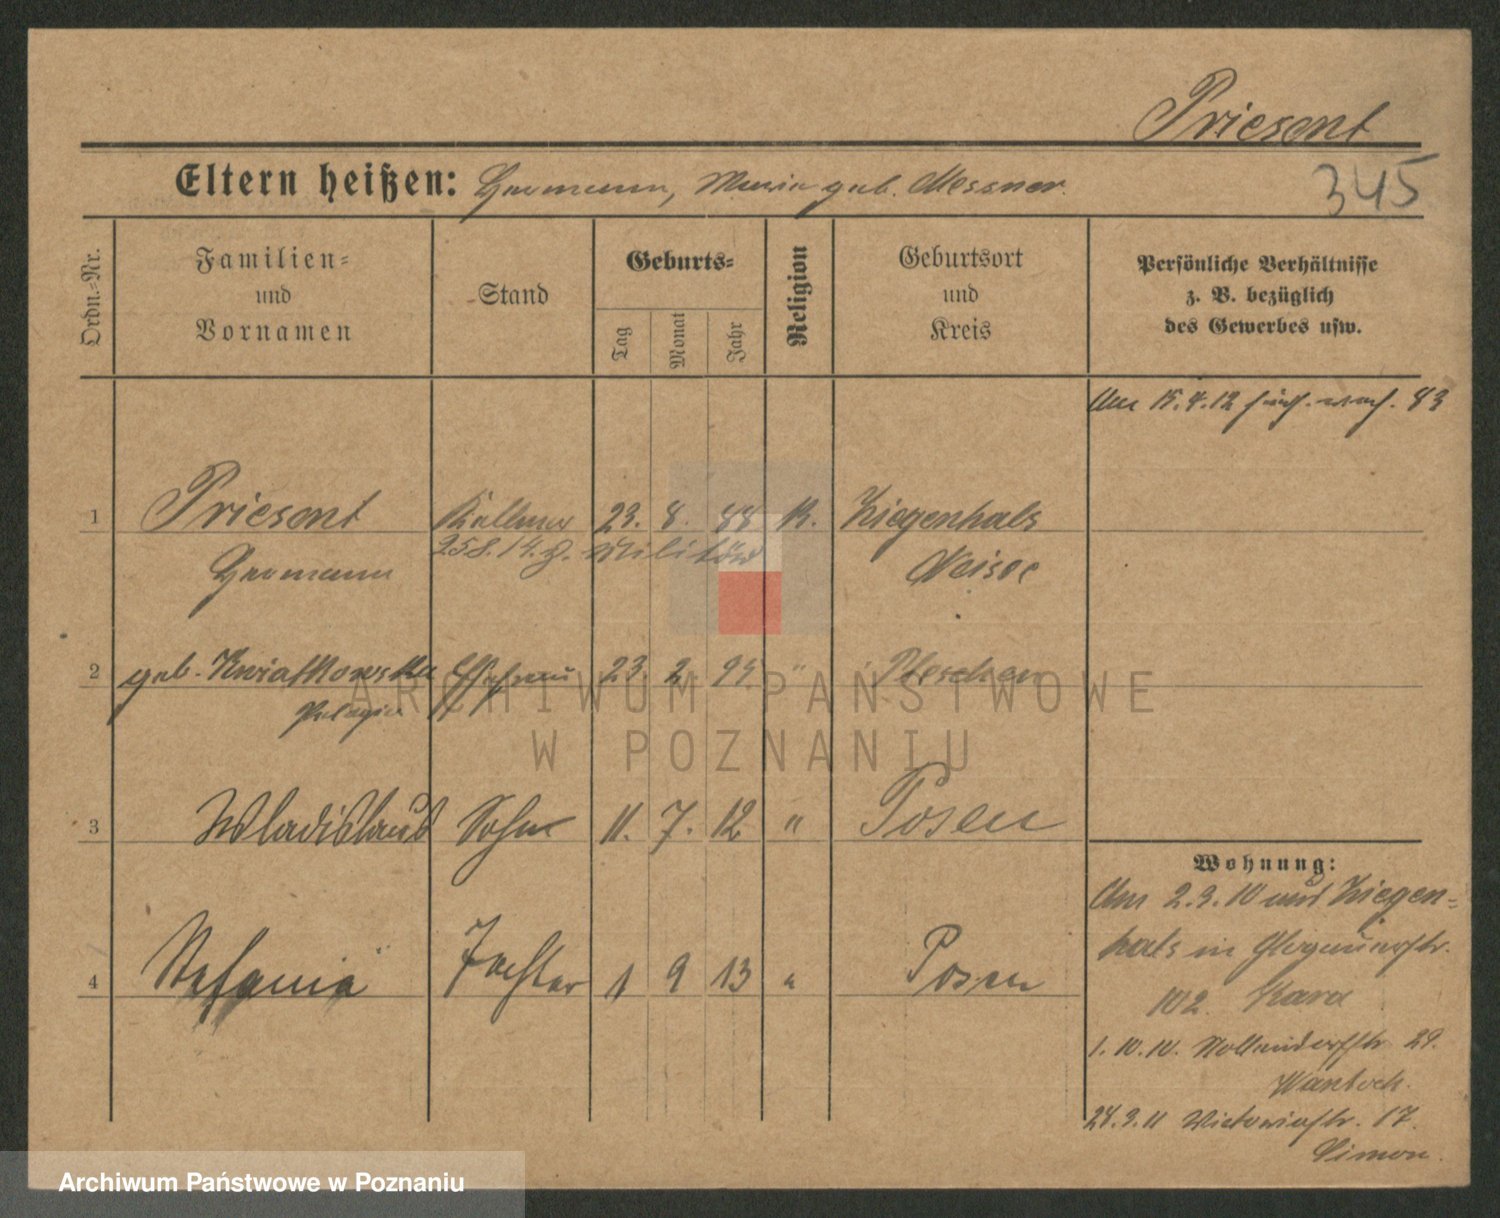 Priesont
Eltern heißen: Hermann, Maria geb. Messner.
345
Ordn.=Nr.
Familien=
und
Vornamen
Stand
Geburts=
Tag
Monat
Jahr
Religion
Geburtsort
und
Kreis
Persönliche Verhältnisse
z. B. bezüglich
des Gewerbes usw.
Am 15.4.12 83
1 Priesont Kellner 23. 8. 88 K. Ziegenhals
25 8. 14. z. Militär
Hermann Neisse
2 geb. Kwiatkowska Ehefrau 23. 2. " Pleschen
Pelagia
3 Wladislaus Sohn 11. 7. 12 " Posen
4 Stefania Tochter 1 9 13 " Posen
Wohnung:
Am 2.3.10 aus Ziegen=
hals in Glogauerstr.
102.
1. 10. 10. Nollendorfstr 29.
24.3.11 Victoriastr. 17.
Simon.
ARCHIWUM PAŃSTWOWE
W POZNANIU
Archiwum Państwowe w Poznaniu